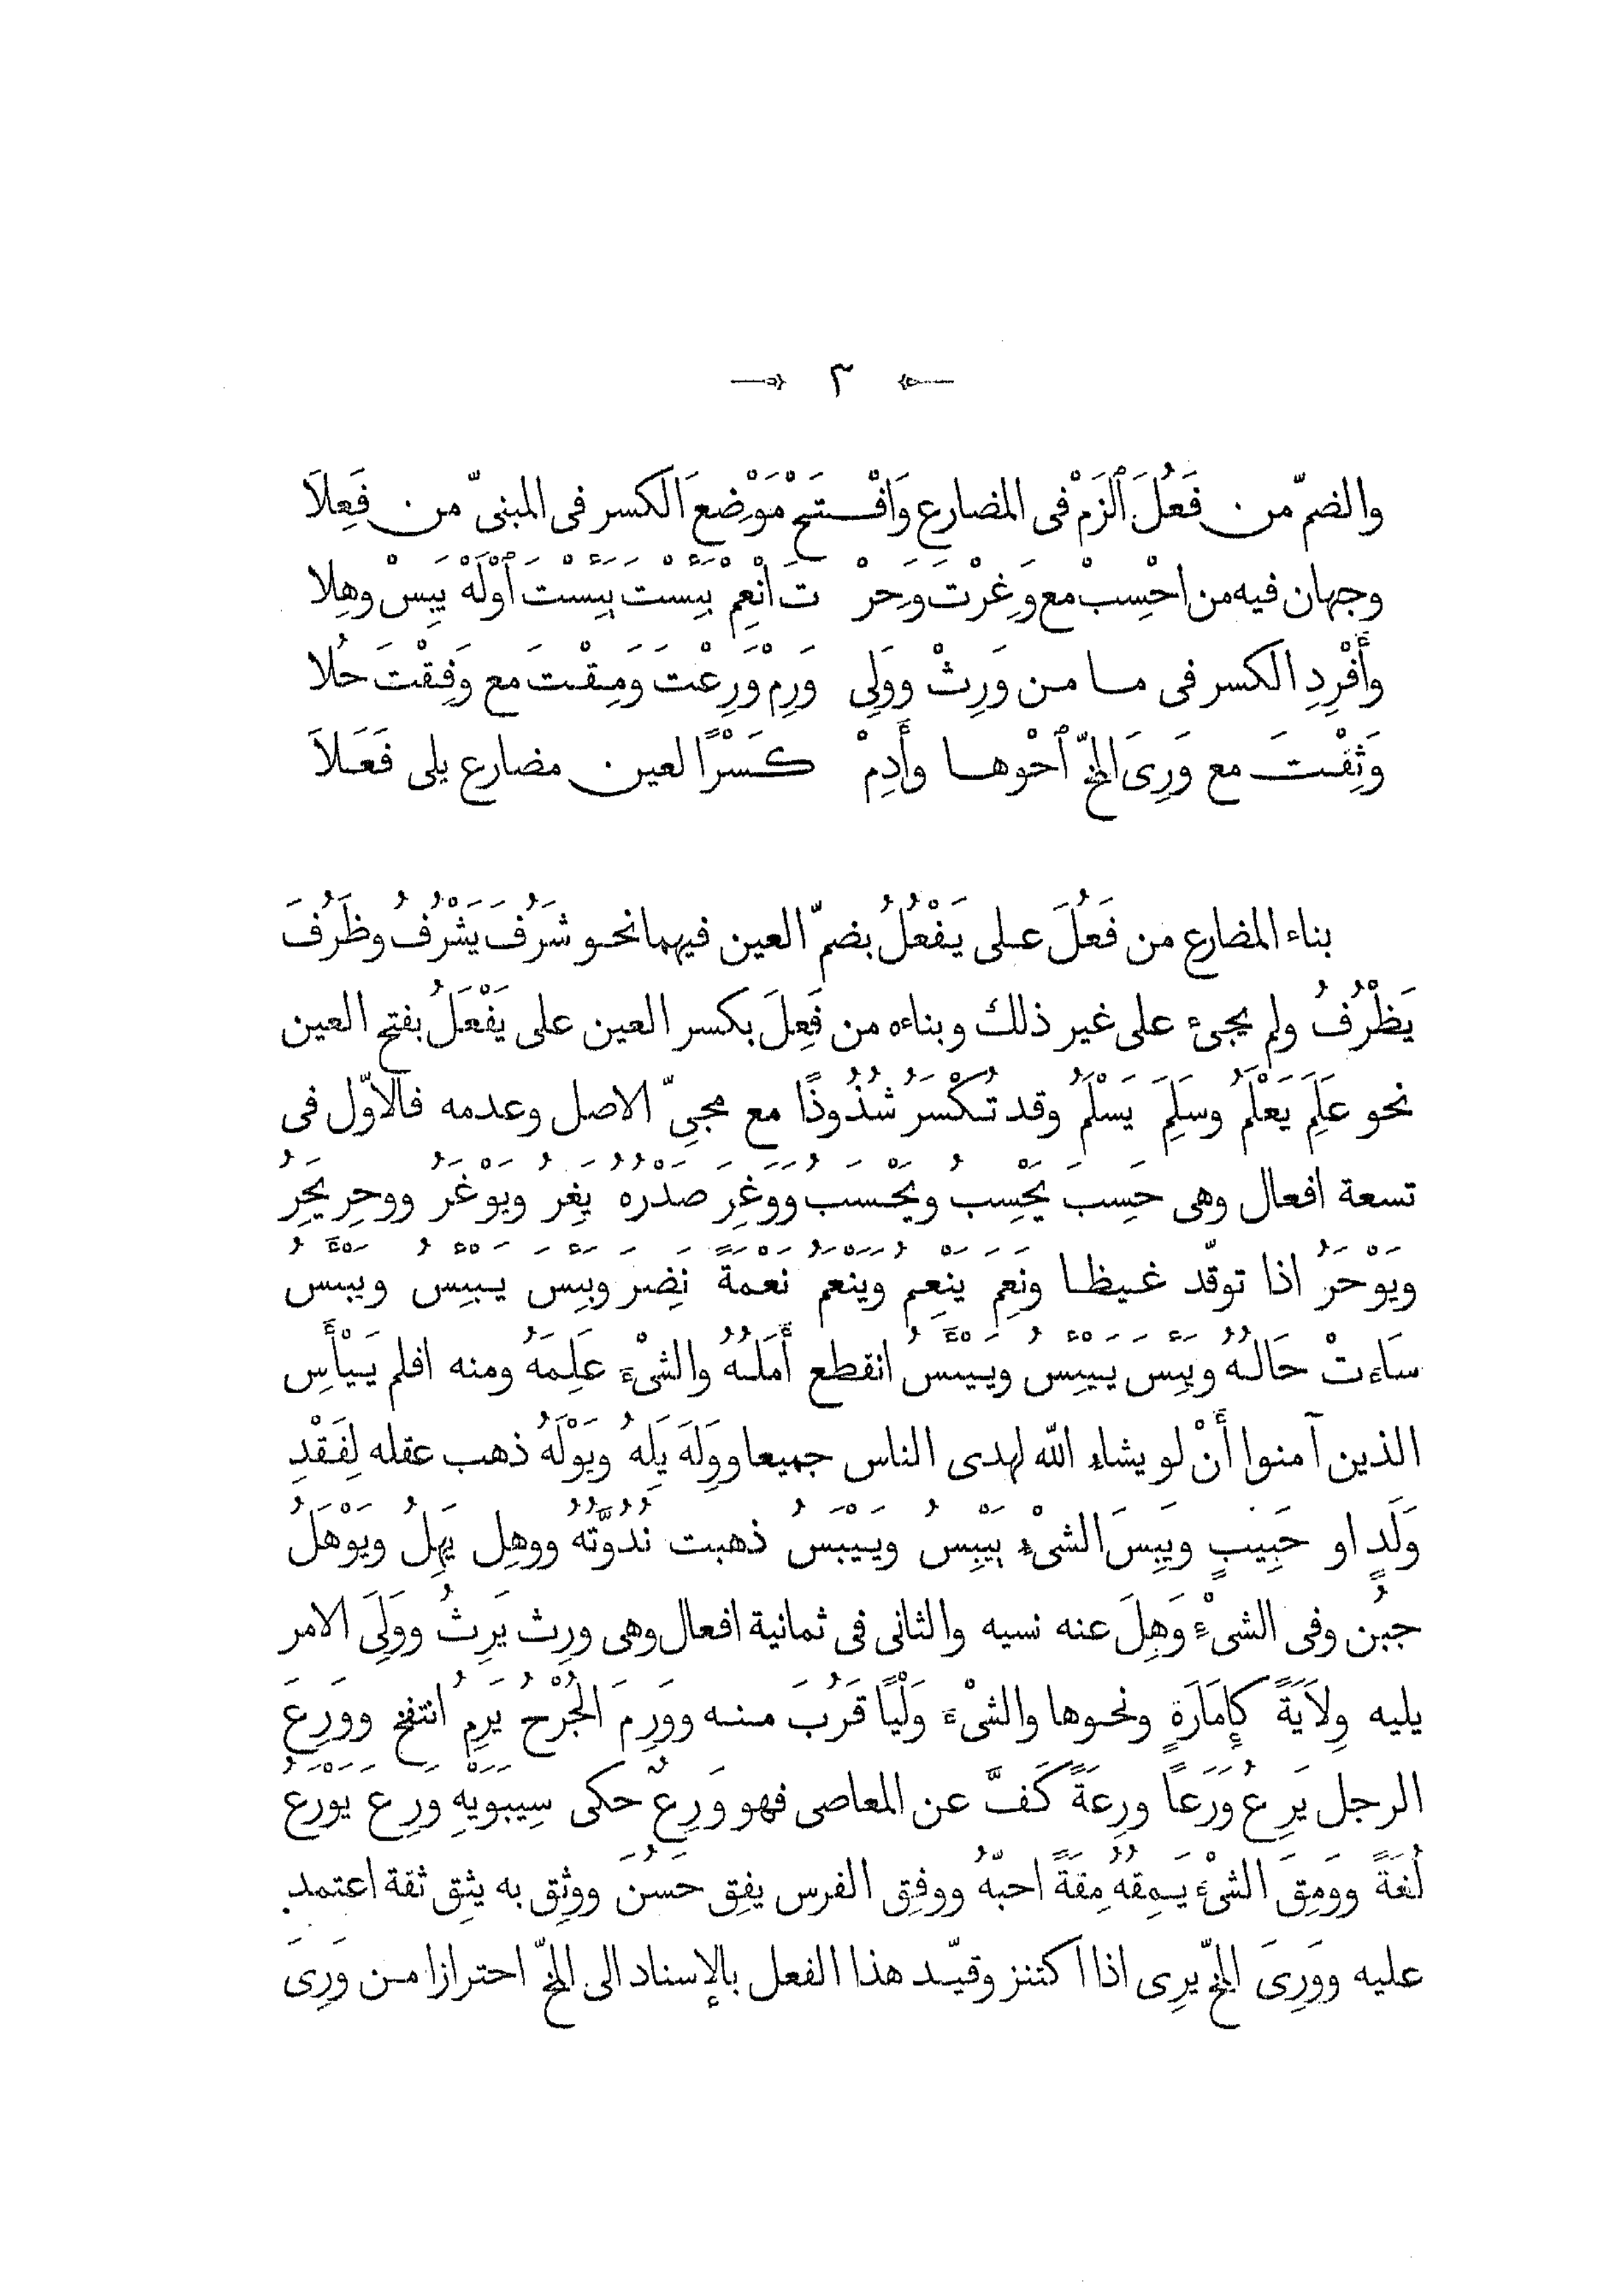 ٣
والضمّ من فَعُلَ ٱلزَمْ فى المضارع وَافْتَحْ مَوْضِعَ الكسر فى المبنىّ من فَعِلَا
وجهان فيه من احْسِبْ مع وَغِرْتَ وَحِرْ تَ انْعِمْ بَئِسْتَ يَئِسْتَ ٱوْلَهْ يَبِسْ وهِلا
وأَفْرِدِ الكسر فى ما من وَرِثْ وَوَلِى وَرِمْ وَرِعْتَ وَمِقْتَ مع وَفِقْتَ حُلا
وَثِقْتَ مع وَرِىَ المخّ ٱحْوها وأَدِمْ كَسْرًا لعين مضارع يلى فَعَلَا
بناء المضارع من فَعُلَ على يَفْعُلُ بضمّ العين فيهما نحو شَرُفَ يَشْرُفُ وظَرُفَ
يَظْرُفُ ولم يجىء على غير ذلك وبناءه من فَعِلَ بكسر العين على يَفْعَلُ بفتح العين
نحو عَلِمَ يَعْلَمُ وسَلِمَ يَسْلَمُ وقد تُكْسَرُ شُذُوذًا مع مجىّ الاصل وعدمه فالاوّل فى
تسعة افعال وهى حَسِبَ يَحْسِبُ ويَحْسَبُ ووَغِرَ صَدْرُهُ يَغِرُ ويَوْغَرُ ووحِر يَحِرُ
ويَوْحَرُ اذا توقّد غيظا ونَعِمَ يَنْعِمُ وَيَنْعَمُ نَعْمَةً نَضِرَ وبَئِسَ يَبْئِسُ ويَبْأَسُ
سَاءتْ حَالُهُ ويَئِسَ يَيْئِسُ ويَيْأَسُ انقطع أَمَلُهُ والشىْءَ عَلِمَهُ ومنه افلم يَيْأَسِ
الذين آمنوا أَنْ لو يشاء الله لهدى الناس جميعا ووَلِهَ يَلِهُ ويَوْلَهُ ذهب عقله لِفَقْدِ
وَلَدٍ او حَبِيبٍ ويَبِسَ الشىْء يَيْبِسُ ويَيْبَسُ ذهبت نُدُوَّتُهُ ووهِل يَهِلُ ويَوْهَلُ
جبُن وفى الشىْءِ وَهِلَ عنه نسيه والثانى فى ثمانية افعال وهى ورِث يَرِثُ ووَلِىَ الامر
يليه وِلَايَةً كإِمَارَةٍ ونحوها والشىْءَ وَلْيًا قَرُبَ منه ووَرِمَ الجُرْحُ يَرِمُ انتفخ ووَرِعَ
الرجل يَرِعُ وَرَعاً ورِعَةً كَفَّ عن المعاصى فهو وَرِعٌ حكى سِيبَوَيْهِ وَرِعَ يَوْرَعُ
لُغَةً ووَمِقَ الشىْءَ يَمِقُهُ مِقَةً احبّهُ ووفِق الفرس يفِق حَسُنَ ووثِق به يثِق ثقة اعتمد
عليه ووَرِىَ المخّ يرِى اذا اكتنز وقيّد هذا الفعل بالإسناد الى المخّ احترازا من وَرِىَ